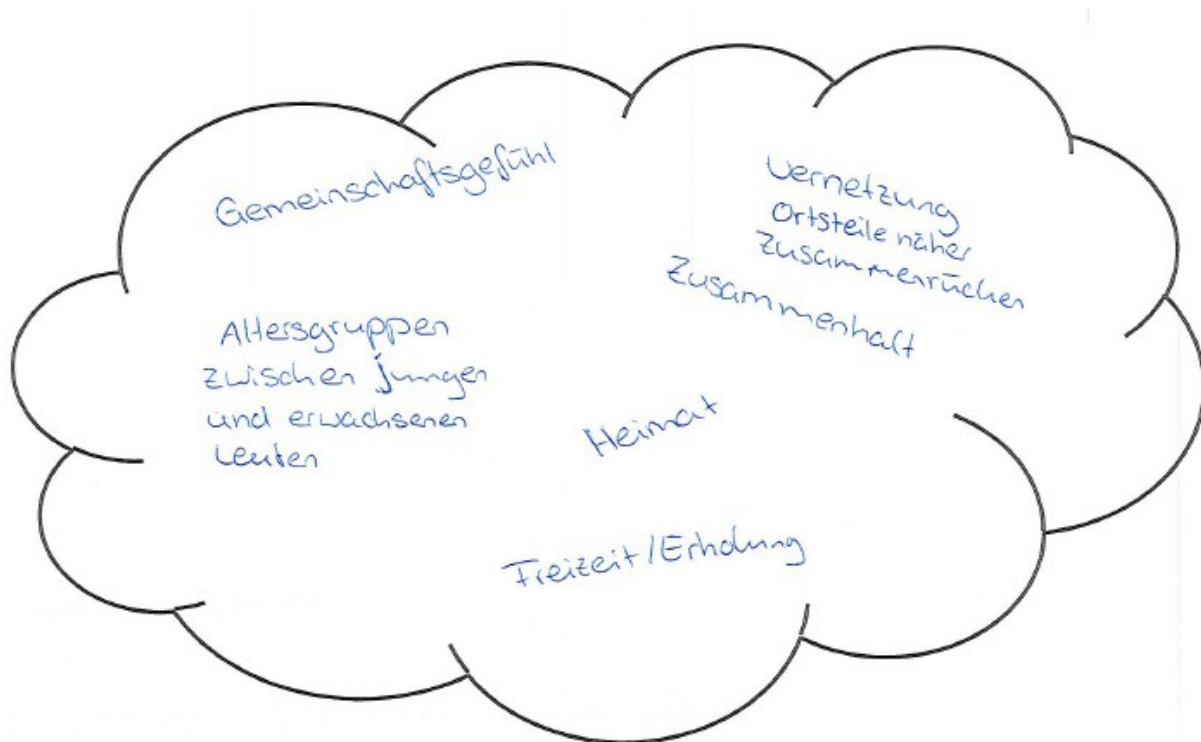 Gemeinschaftsgefühl
Vernetzung
Ortsteile näher
Zusammenrücken
Zusammenhalt
Altersgruppen
zwischen jungen
und erwachsenen
Leuten
Heimat
Freizeit/Erholung